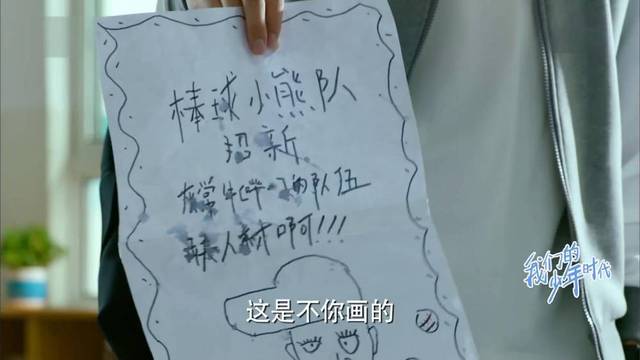 棒球小熊队
招新
非常牛(哔)的队伍
缺人才啊!!!
我们的
少年时代
这是不你画的